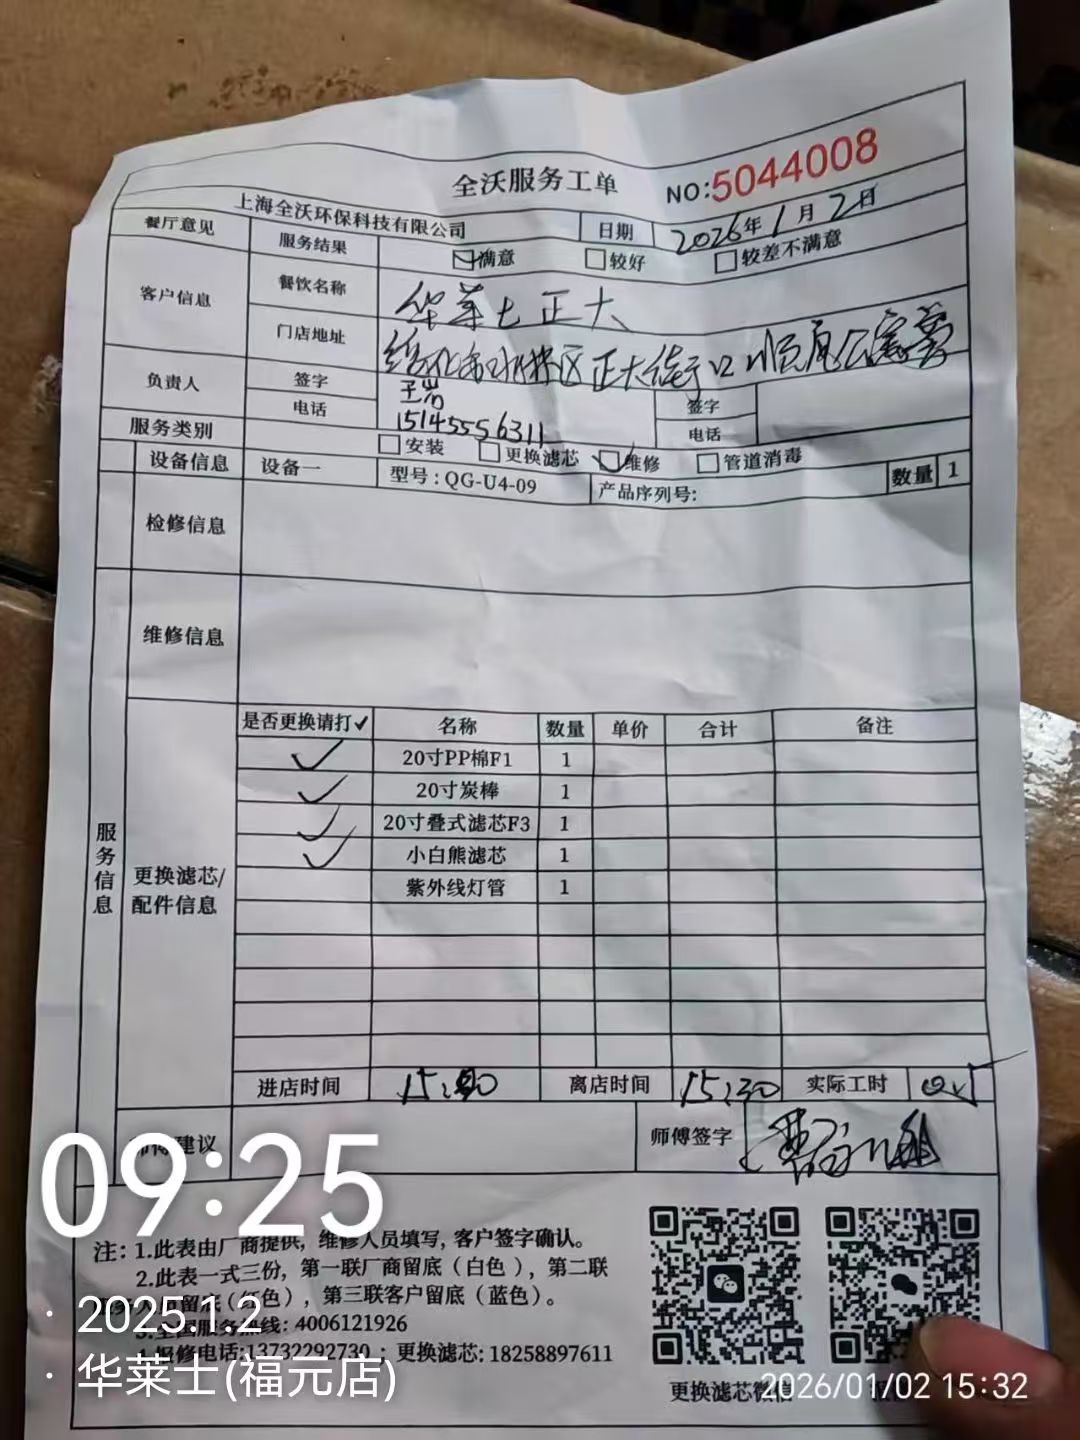 全沃服务工单
NO:5044008
上海全沃环保科技有限公司
日期 2026年1月2日
餐厅意见 服务结果 满意 较好 较差不满意
客户信息 餐饮名称 华莱士正大
门店地址 绥化市北林区正大街口顺
负责人 签字 王岩 签字
电话 15145556311 电话
服务类别 安装 更换滤芯 维修 管道消毒
设备信息 设备一 型号:QG-U4-09 产品序列号: 数量 1
检修信息
维修信息
服务信息
更换滤芯/
配件信息
是否更换请打✓ 名称 数量 单价 合计 备注
✓ 20寸PP棉F1 1
✓ 20寸炭棒 1
✓ 20寸叠式滤芯F3 1
✓ 小白熊滤芯 1
紫外线灯管 1
进店时间 离店时间 15:30 实际工时
建议 师傅签字
注: 1.此表由厂商提供, 维修人员填写, 客户签字确认。
2.此表一式三份, 第一联厂商留底(白色), 第二联
留底(红色), 第三联客户留底(蓝色)。
3.全国服务热线: 4006121926
报修电话:13732292730 ; 更换滤芯: 18258897611
更换滤芯微信
09:25
· 2025.1.2
· 华莱士(福元店)
2026/01/02 15:32